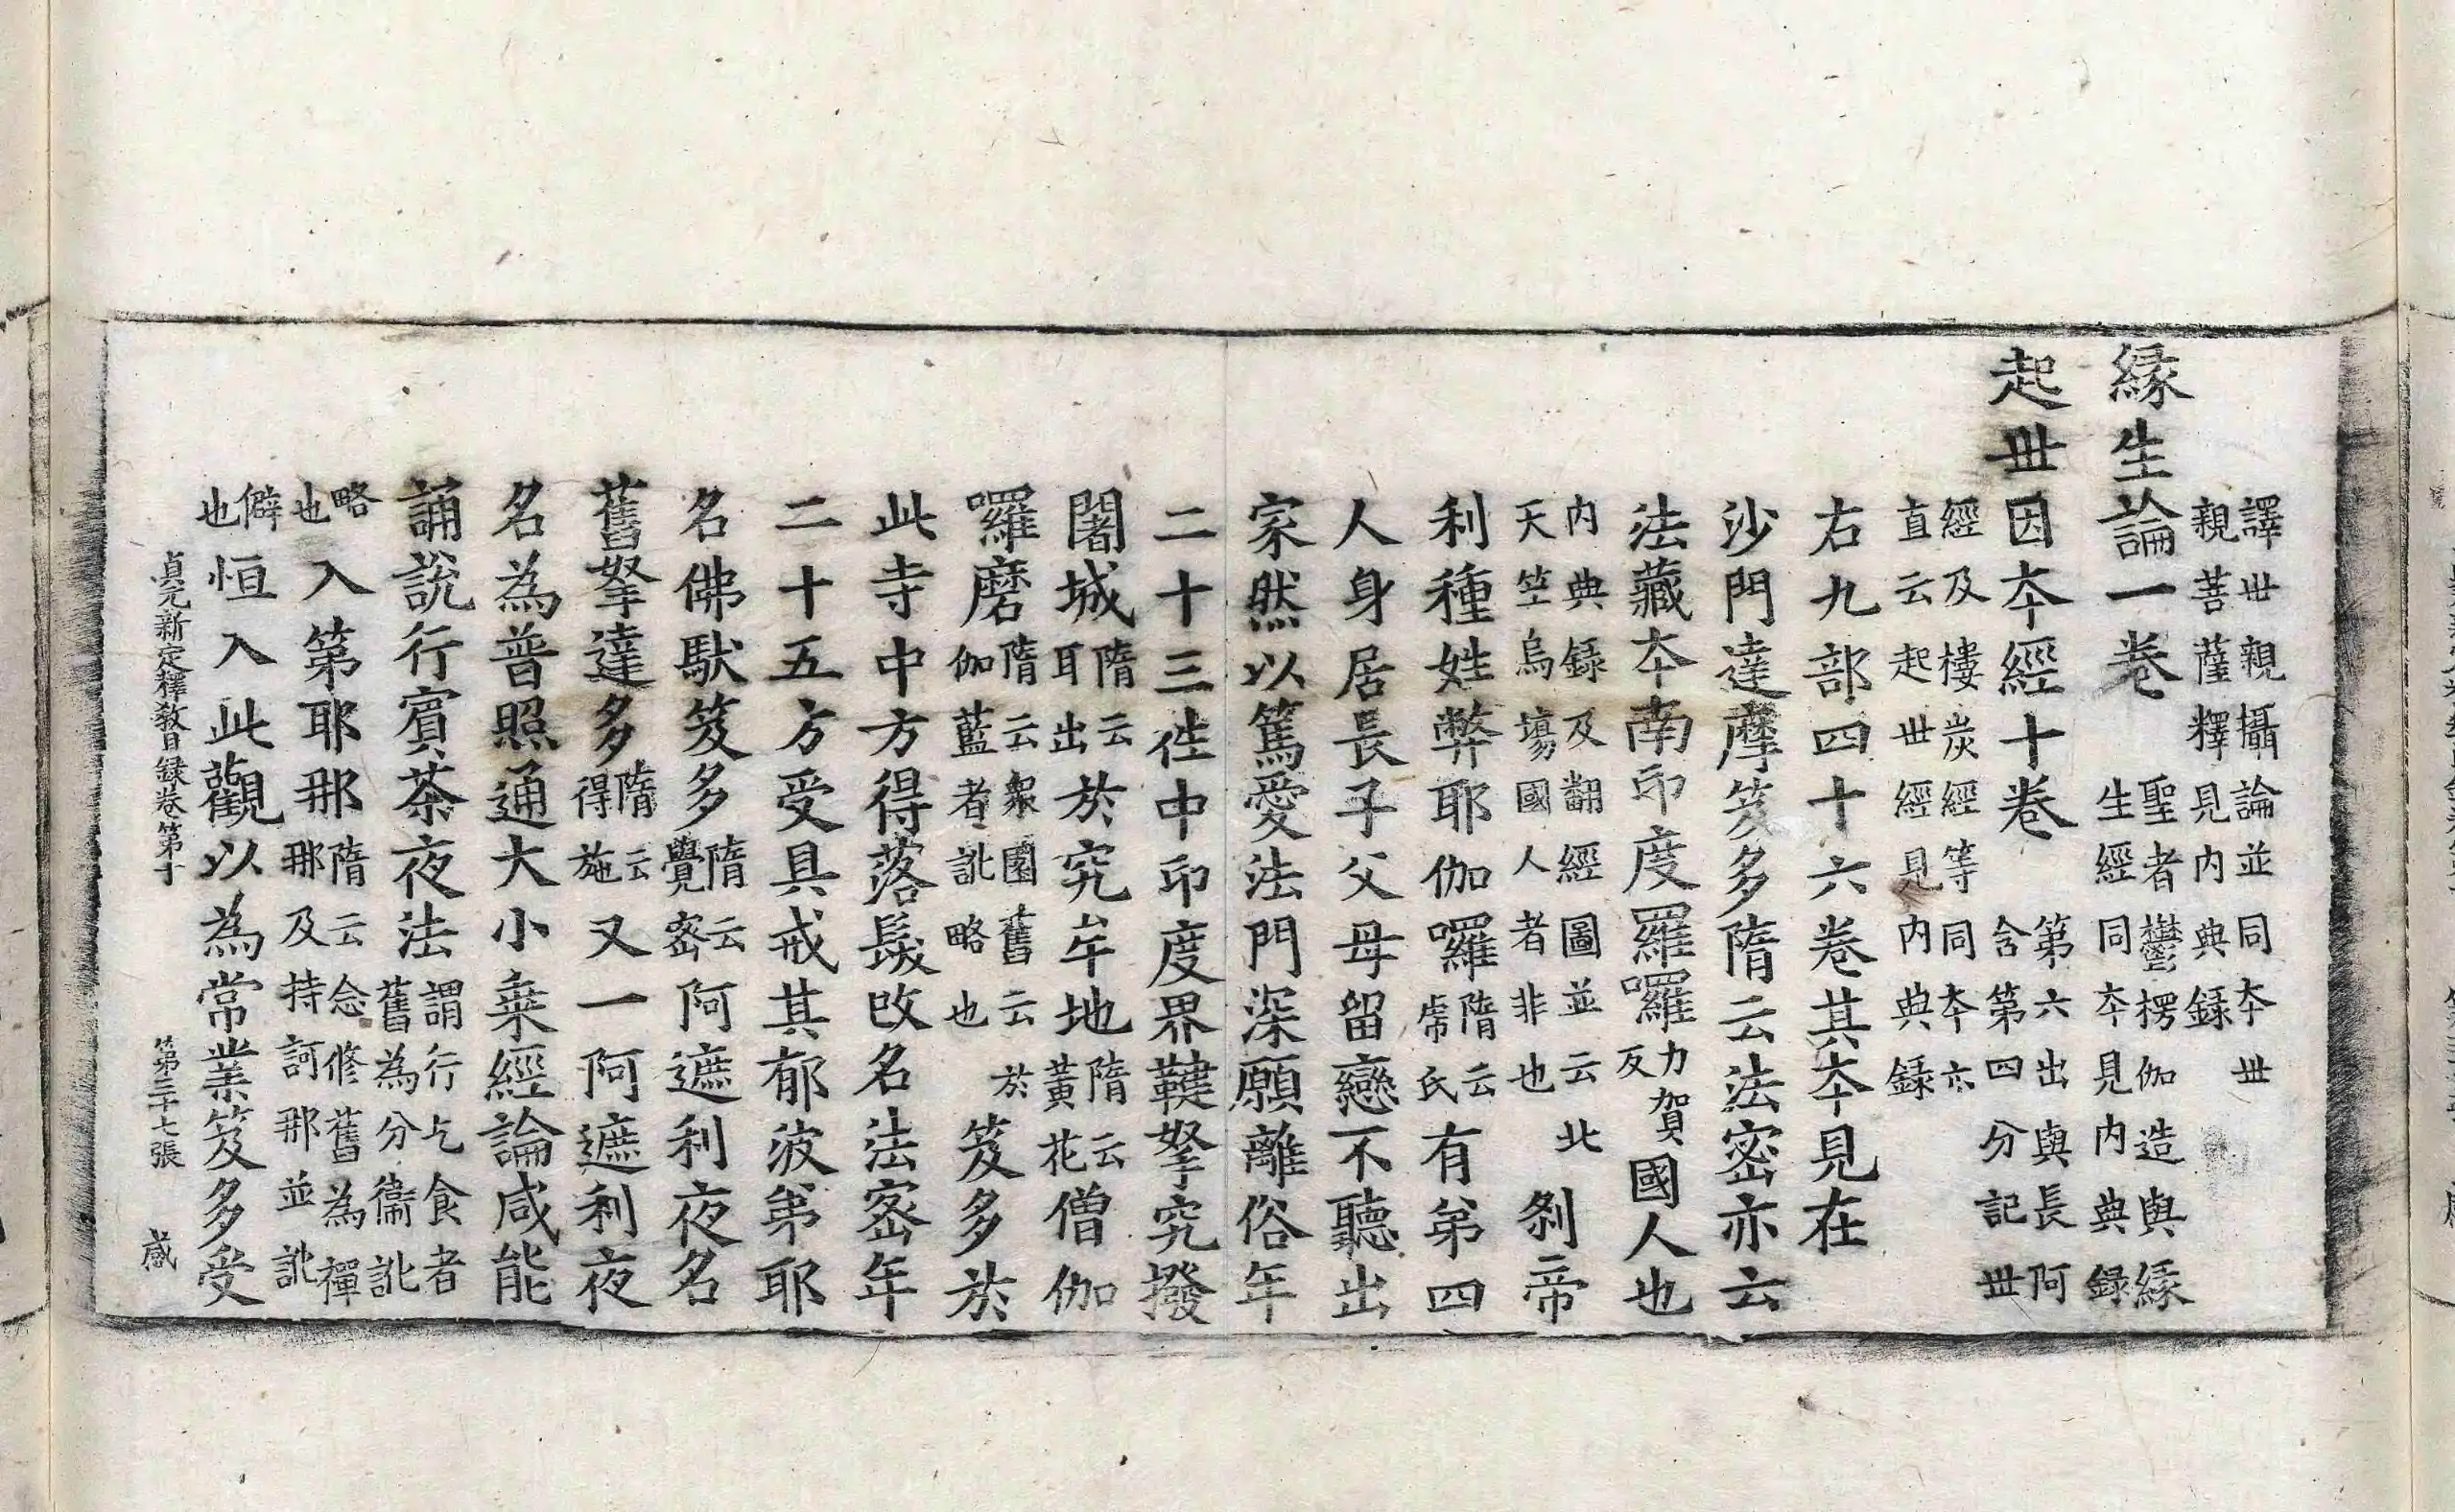 譯世親攝論並同本世
親菩薩釋見內典録
縁生論一卷
聖者鬱楞伽造與縁
生經同本見內典録
起世因本經十卷
第六出與長阿
含第四分記世
經及樓炭經等同本亦
直云起世經見內典録
右九部四十六卷其本見在
沙門達摩笈多隋云法密亦云
法藏本南印度羅囉力賀反國人也
內典録及翻經圖並云北
天竺烏場國人者非也
刹帝
利種姓弊耶伽囉
隋云
虎氏
有弟四
人身居長子父母留戀不聽出
家然以篤愛法門深願離俗年
二十三徃中印度界鞬拏究撥
闍城
隋云
耳出
於究牟地
隋云
黃花
僧伽
囉磨
隋云衆園舊云
伽藍者訛略也
於笈多於
此寺中方得落髮改名法密年
二十五方受具戒其郁波弟耶
名佛馱笈多
隋云
覺密
阿遮利夜名
舊拏達多
隋云
得施
又一阿遮利夜
名為普照通大小乗經論咸能
誦說行賓茶夜法
謂行乞食者
舊為分衞訛
略
也
入第耶那
隋云念修舊為禪
那及持訶那並訛
僻
也
恒入此觀以為常業笈多受
貞元新定釋教目録卷第十　第二十七張　感